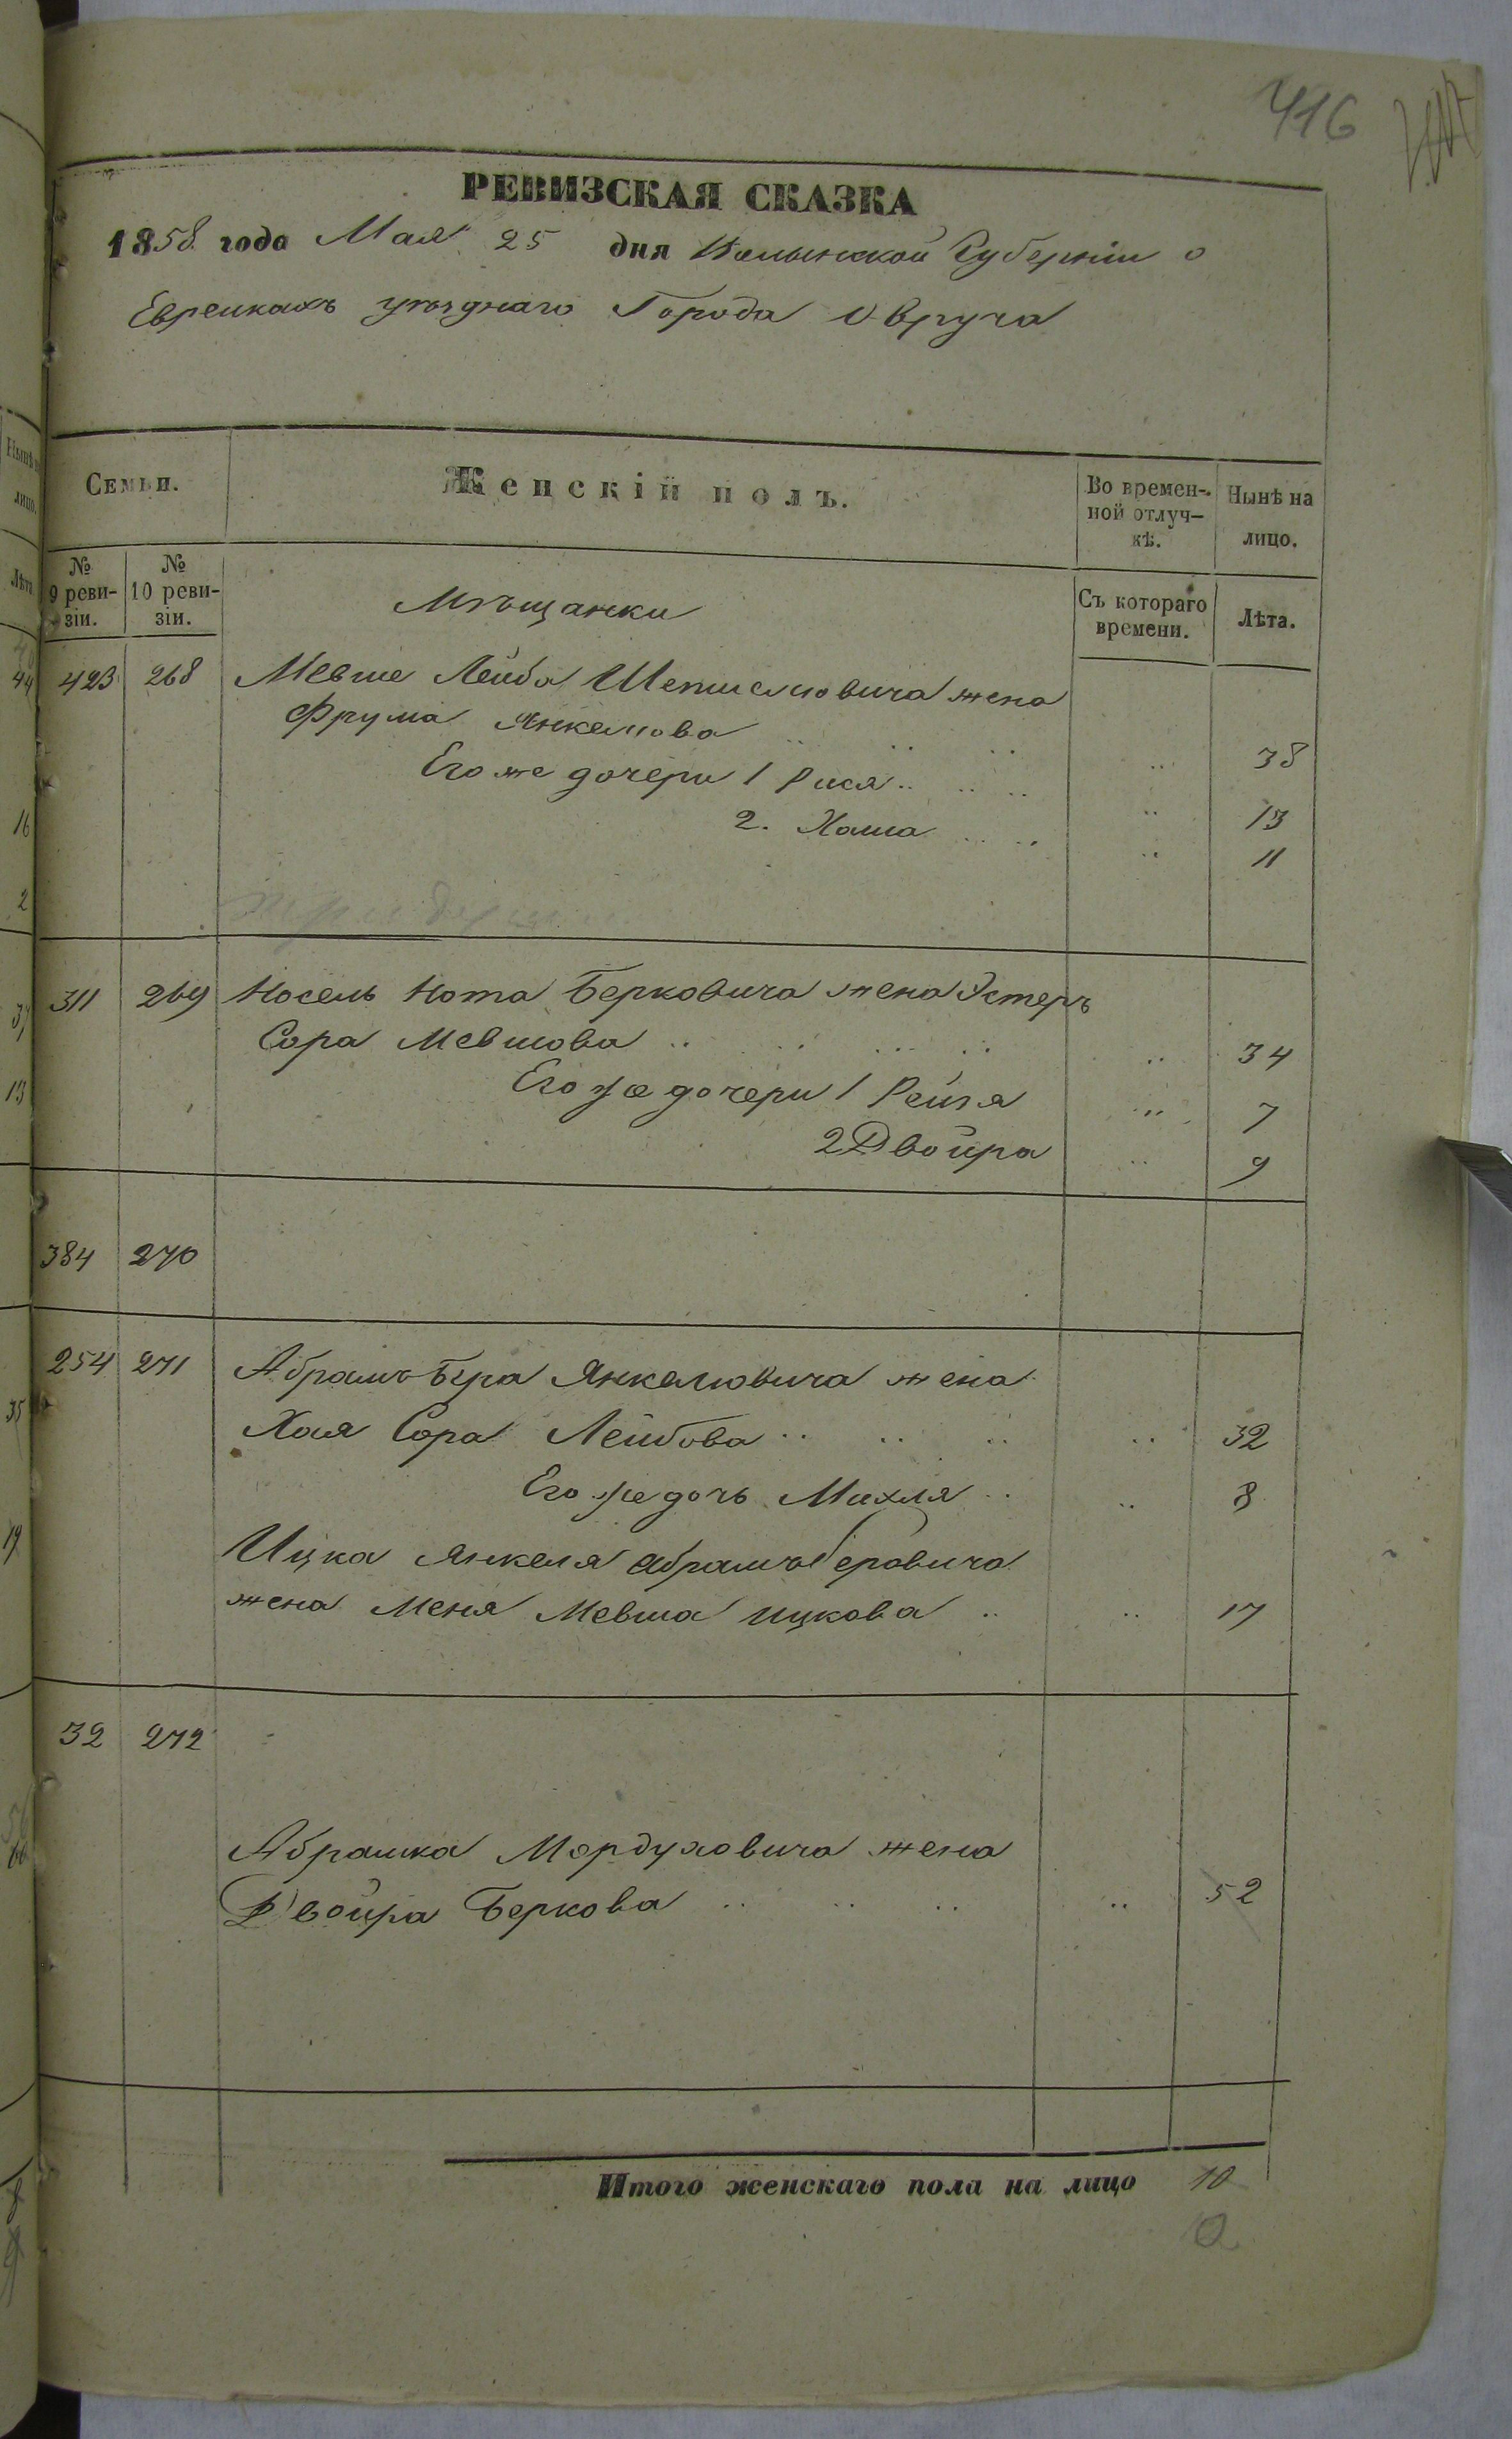 416
РЕВИЗСКАЯ СКАЗКА
1858 года Мая 25 дня Волынской Губерніи о
Евреикахъ уѣзднаго Города Овруча
Семьи.
Женскій полъ.
Во времен-
ной отлуч-
кѣ.
Нынѣ на
лицо.
№
9 реви-
зіи.
№
10 реви-
зіи.
Съ котораго
времени.
Лѣта.
Мѣщанки
423 268 Мевше Лейба жена
Фрума Янкелова .. .. .. .. 38
Его же дочери 1 Рися .. .. .. .. 13
2. Хаша .. .. .. 11
311 269 Носель Нота Берковича жена Эстеръ
Сора Мевшова .. .. .. .. .. 34
Его же дочери 1 Рейзя .. 7
2 Двойра .. 9
384 270
254 271 Абрамъ Бера Янкелювича жена
Хая Сора Лейбова .. .. .. .. 32
Его же дочь Михля .. .. 8
Ицка Янкеля Абрамъ Беровича
жена Меня Мевша Ицкова .. .. 17
32 272
Абрамка Мордуховича жена
Двойра Беркова .. .. .. .. 52
Итого женскаго пола на лицо 10